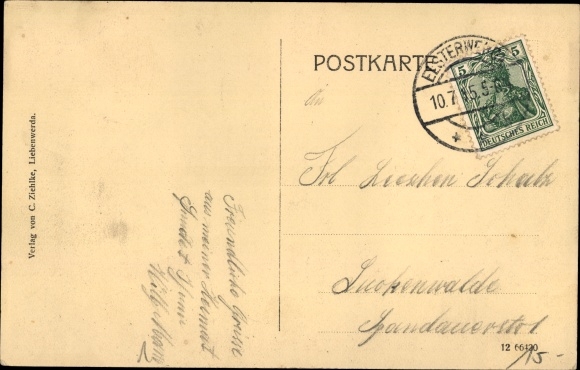 POSTKARTE
ELSTERWERDA
10.7.15.5-6N
5 5
DEUTSCHES REICH
An
Frl Lieschen Scholz
Luckenwalde
Spandauerstr 1
Freundliche Grüsse
aus meiner Heimat
sendet
Verlag von C. Ziehlke, Liebenwerda.
12 66420
15-